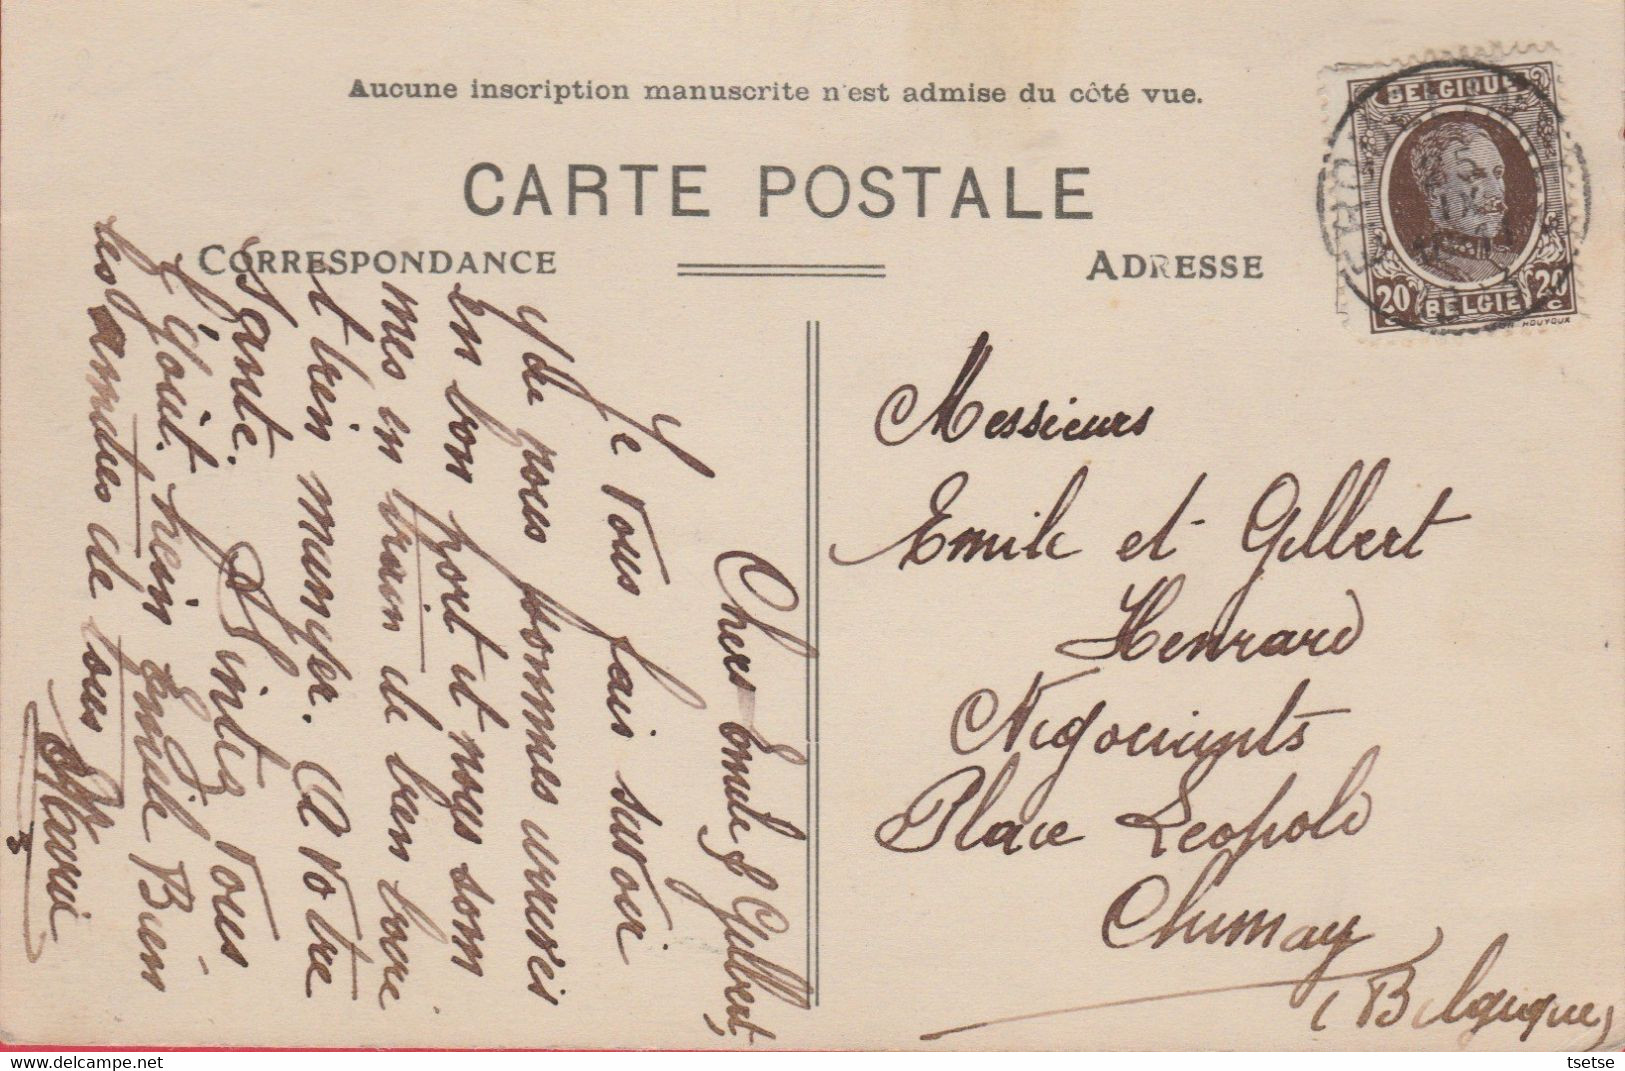 Aucune inscription manuscrite n'est admise du côté vue.
CARTE POSTALE
CORRESPONDANCE
ADRESSE
BELGIQUE
20 20
c c
BELGIË
HOUYOUX
Chers Emile & Gilbert,
Je vous fais savoir
que nous sommes arrivés
en bon port et nous som
mes en train de bien boire
et bien manger. A votre
santé. vous
l'gout. hein Emile Bien
les de tous
Marie
Messieurs
Emile et Gilbert
Henrard
Négociants
Place Leopold
Chimay
(Belgique)
tsetse